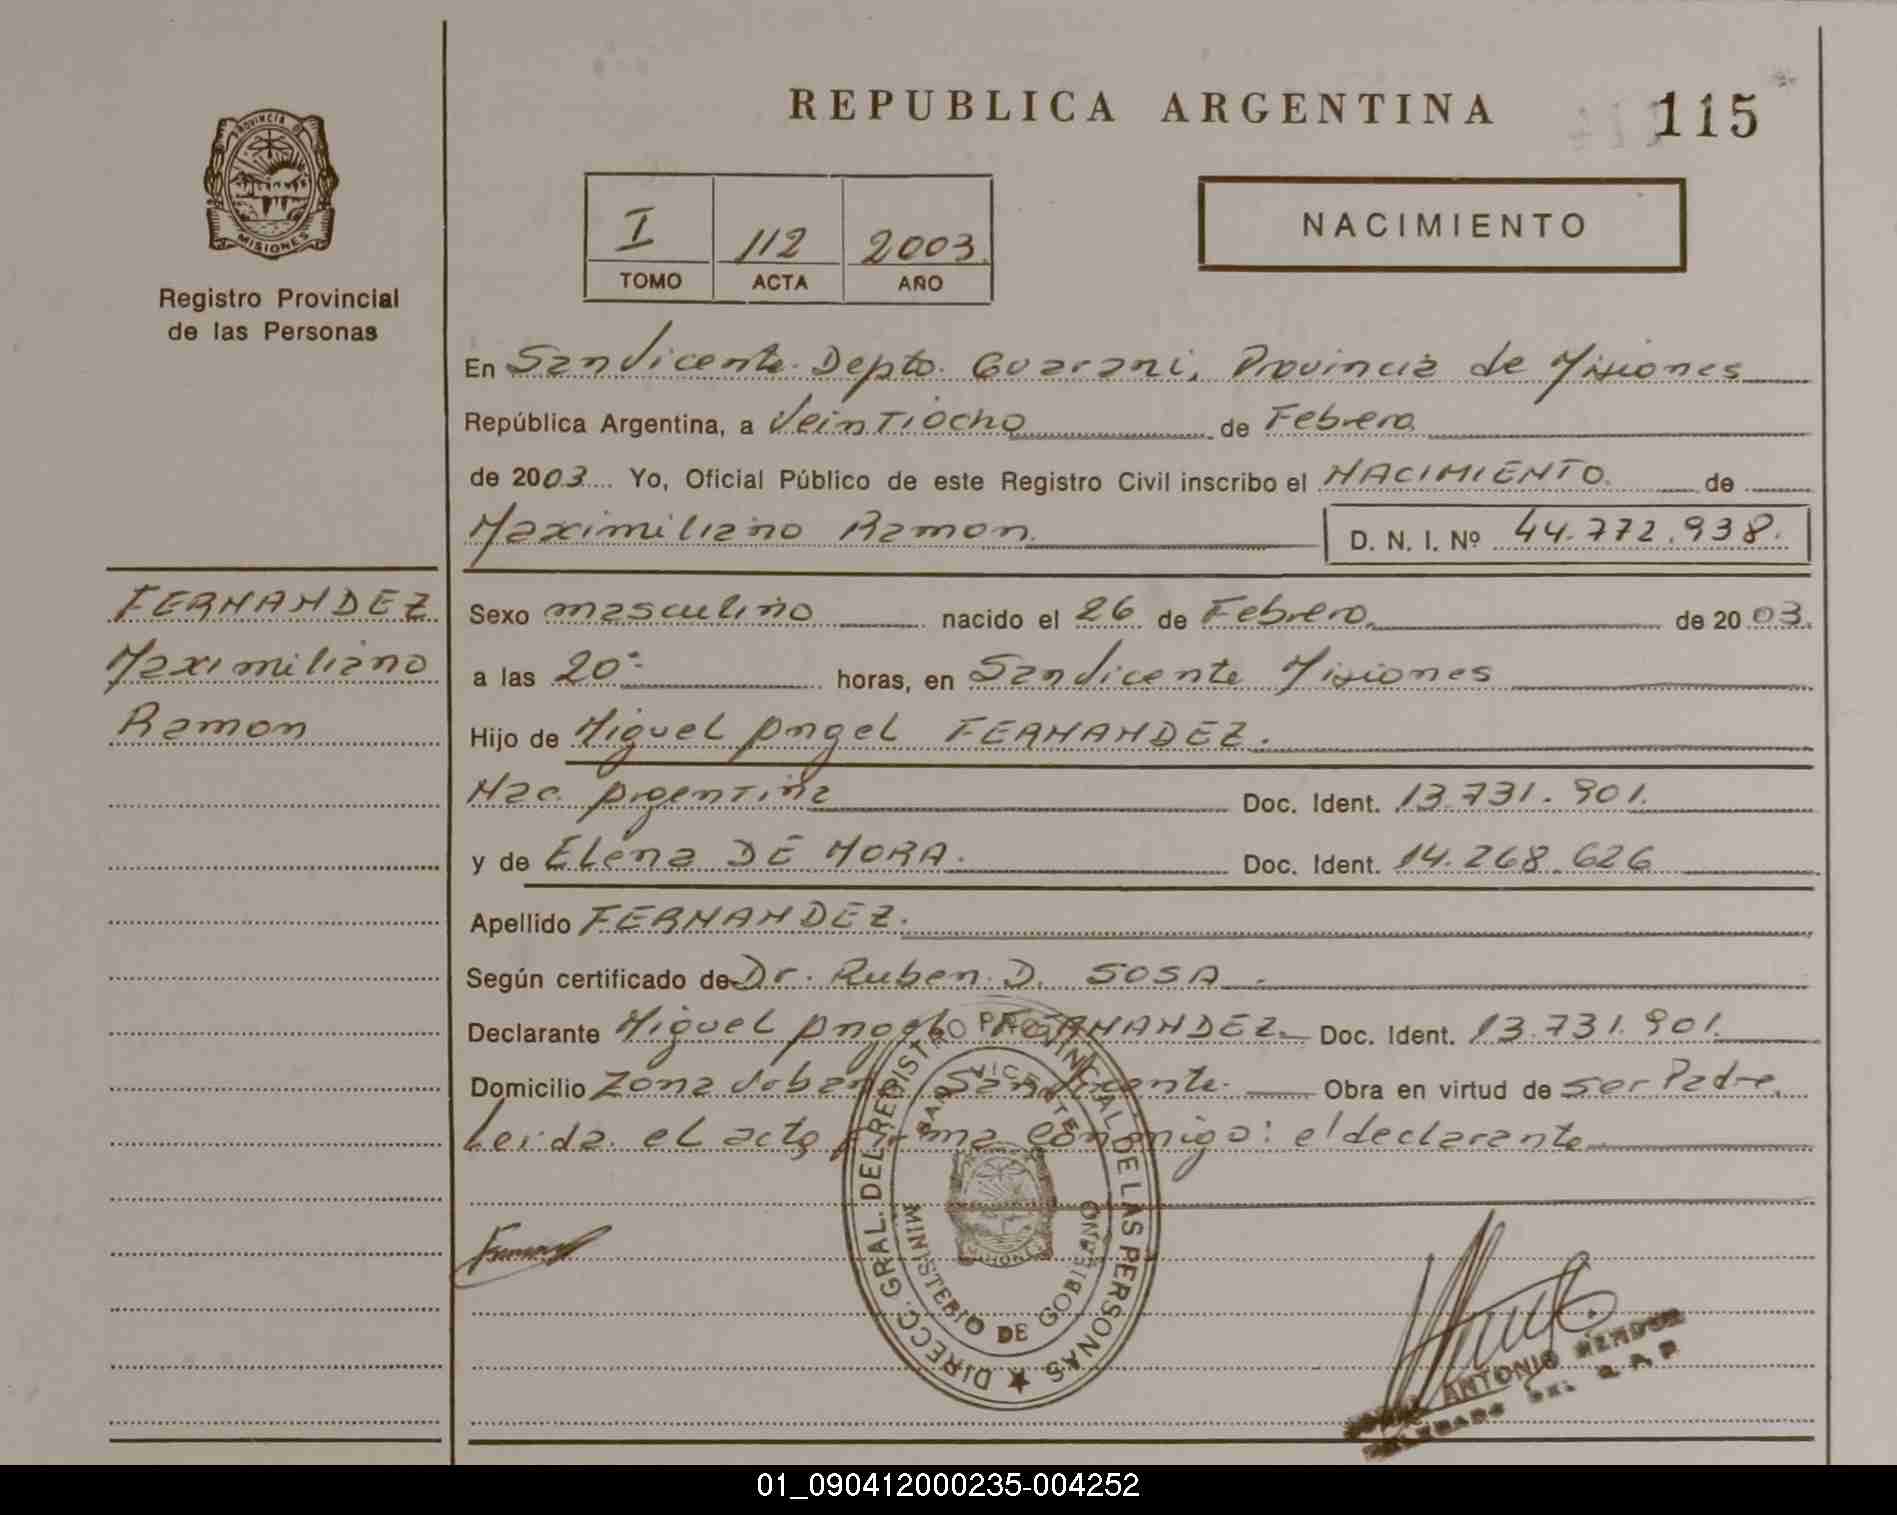 REPUBLICA ARGENTINA
115
PROVINCIA DE
MISIONES
Registro Provincial
de las Personas
I 112 2003.
TOMO ACTA AÑO
NACIMIENTO
En San Vicente. Depto. Guarani, Provincia de Misiones
República Argentina, a Veintiocho de Febrero
de 2003 Yo, Oficial Público de este Registro Civil inscribo el NACIMIENTO. de
Maximiliano Ramon. D. N. I. Nº 44.772.938.
FERNANDEZ
Maximiliano
Ramon
Sexo masculino nacido el 26 de Febrero. de 2003.
a las 20 horas, en San Vicente Misiones
Hijo de Miguel Angel FERNANDEZ.
Nac. Argentina Doc. Ident. 13.731.901.
y de Elena DE MORA. Doc. Ident. 14.268.626
Apellido FERNANDEZ.
Según certificado de Dr. Ruben D. SOSA.
Declarante Miguel Angel FERNANDEZ. Doc. Ident. 13.731.901.
Domicilio Zona Urbana San Vicente. Obra en virtud de ser Padre.
Leida el acta firma conmigo: el declarante
DIRECC. GRAL. DEL REGISTRO PROVINCIAL DE LAS PERSONAS
SAN VICENTE
MISIONES
MINISTERIO DE GOBIERNO
ANTONIO
01_090412000235-004252